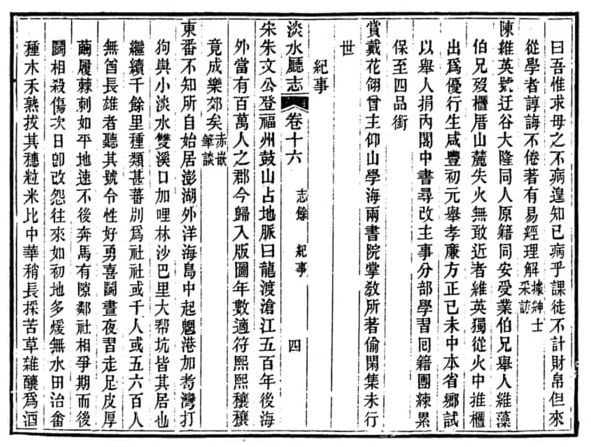 曰吾惟求母之不病遑知己病乎課徒不計財帛但來
從學者諄誨不倦著有易經理解據紳士采訪
陳維英號迂谷大隆同人原籍同安受業伯兄舉人維藻
伯兄歿櫃厝山麓失火無敢近者維英獨從火中推櫃
出爲優行生咸豐初元舉孝廉方正己未中本省鄉試
以舉人捐內閣中書尋改主事分部學習回籍團練累
保至四品銜
賞戴花翎曾主仰山學海兩書院掌敎所著偷閒集未行
世
紀事
淡水廳志 卷十六 志餘 紀事 四
宋朱文公登福州鼓山占地脈曰龍渡滄江五百年後海
外當有百萬人之郡今歸入版圖年數適符熙熙穰穰
竟成樂郊矣赤嵌筆談
東番不知所自始居澎湖外洋海島中起魍港加老灣打
狗與小淡水雙溪口加哩林沙巴里大幫坑皆其居也
繼續千餘里種類甚蕃別爲社社或千人或五六百人
無酋長雄者聽其號令性好勇喜鬬晝夜習走足皮厚
繭履棘刺如平地速不後奔馬有隙鄰社相爭期而後
鬬相殺傷次日卽改怨往來如初地多煖無水田治畬
種禾禾熟拔其穗粒米比中華稍長採苦草雜釀爲酒